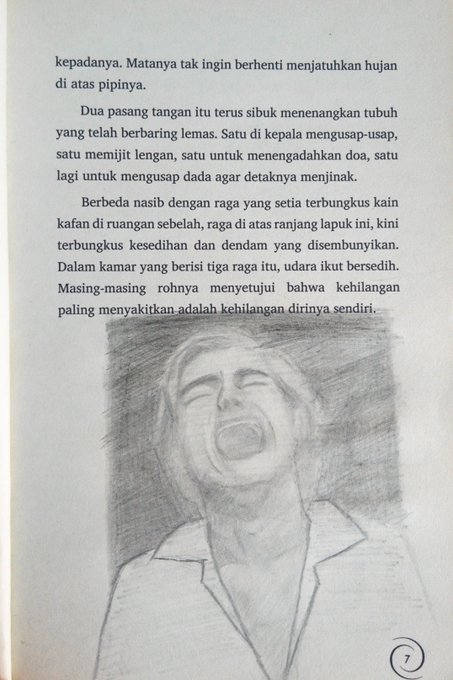 kepadanya. Matanya tak ingin berhenti menjatuhkan hujan
di atas pipinya.
Dua pasang tangan itu terus sibuk menenangkan tubuh
yang telah berbaring lemas. Satu di kepala mengusap-usap,
satu memijit lengan, satu untuk menengadahkan doa, satu
lagi untuk mengusap dada agar detaknya menjinak.
Berbeda nasib dengan raga yang setia terbungkus kain
kafan di ruangan sebelah, raga di atas ranjang lapuk ini, kini
terbungkus kesedihan dan dendam yang disembunyikan.
Dalam kamar yang berisi tiga raga itu, udara ikut bersedih.
Masing-masing rohnya menyetujui bahwa kehilangan
paling menyakitkan adalah kehilangan dirinya sendiri.
7